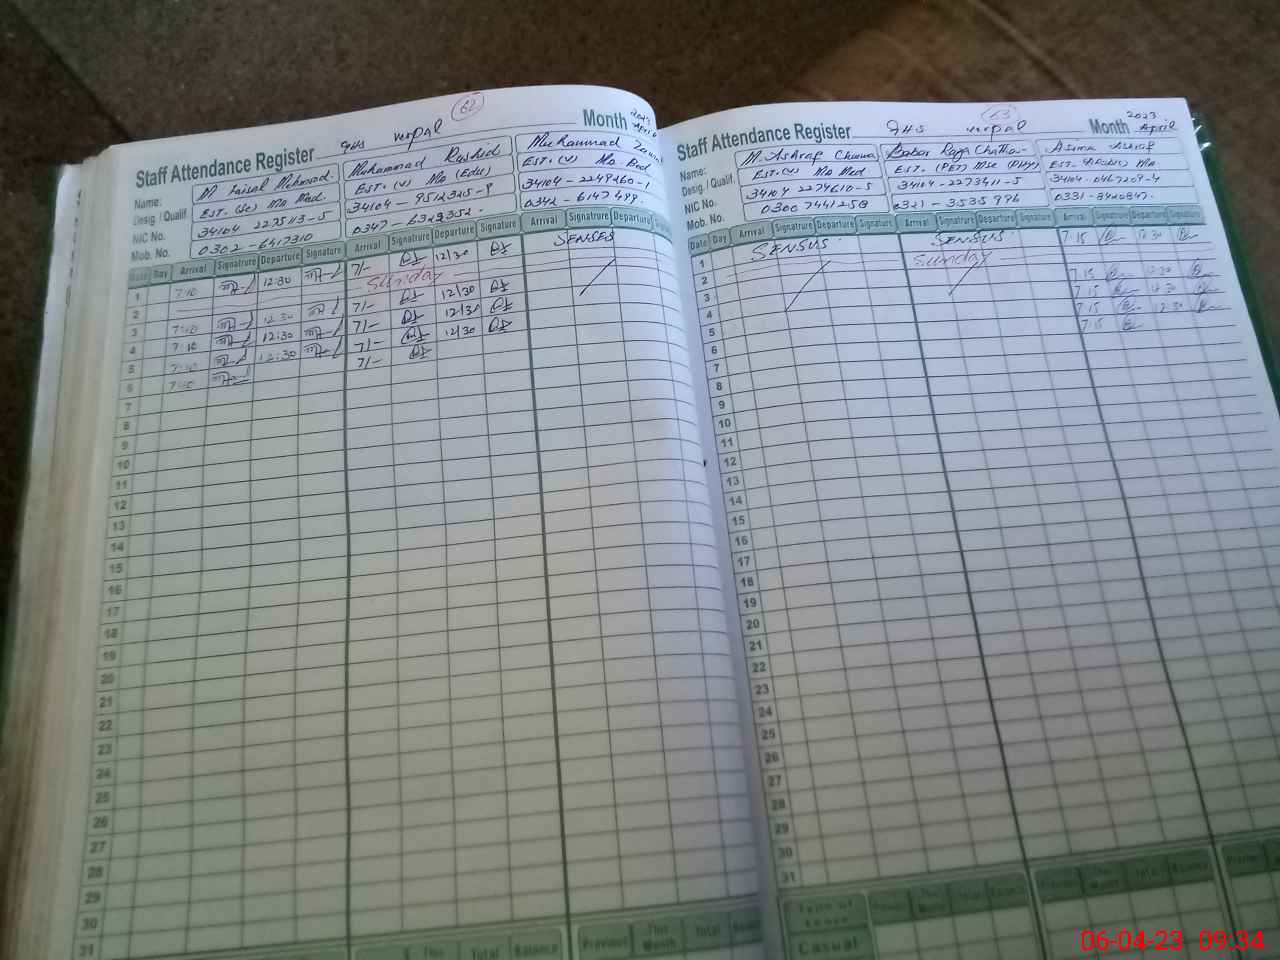 62
Staff Attendance Register GHS Nirpal Month 2023 April
Name: M Faisal Mehmood. Muhammad Rashid Muhammad
Desig. / Qualif. EST. (Sc) MA Med. EST. (v) MA (Edu) EST. (v) MA. Bed
NIC No. 34104 2275113-5 34104-9512325-9 34104-2249260-1
Mob. No. 0302-6417310 0347-6322352. 0342-6147499.
Date Day Arrival Signatrure Departure Signatrure Arrival Signatrure Departure Signatrure Arrival Signatrure Departure Signatrure
1 7:10 12:30 7/- 12/30 SENSES
2 Sunday
3 7:10 12:30 7/- 12/30
4 7:10 12:30 7/- 12/30
5 7:10 12:30 7/- 12/30
6 7:10 7/-
7
8
9
10
11
12
13
14
15
16
17
18
19
20
21
22
23
24
25
26
27
28
29
30
31
This Total Balance Previous This Month Total
63
Staff Attendance Register GHS Nirpal Month 2023 April
Name: M. Ashraf Cheema Babar Raja Chatha Asima Ashraf
Desig. / Qualif. EST. (v) MA Med EST. (PET) MSc (Phy) EST. MA
NIC No. 34104 2279610-5 34104-2273411-5 34104-0467209-4
Mob. No. 0300 7441258 0321-3535996 0331-8420847.
Date Day Arrival Signatrure Departure Signatrure Arrival Signatrure Departure Signatrure Arrival Signatrure Departure Signatrure
1 SENSUS SENSUS 7:15 12:30
2 Sunday
3 7:15 12:30
4 7:15 12:30
5 7:15 12:30
6 7:15
7
8
9
10
11
12
13
14
15
16
17
18
19
20
21
22
23
24
25
26
27
28
29
30
31
Type of Leave Previous This Month Total Balance Previous This Month Total Balance Previous
Casual
06-04-23 09:34